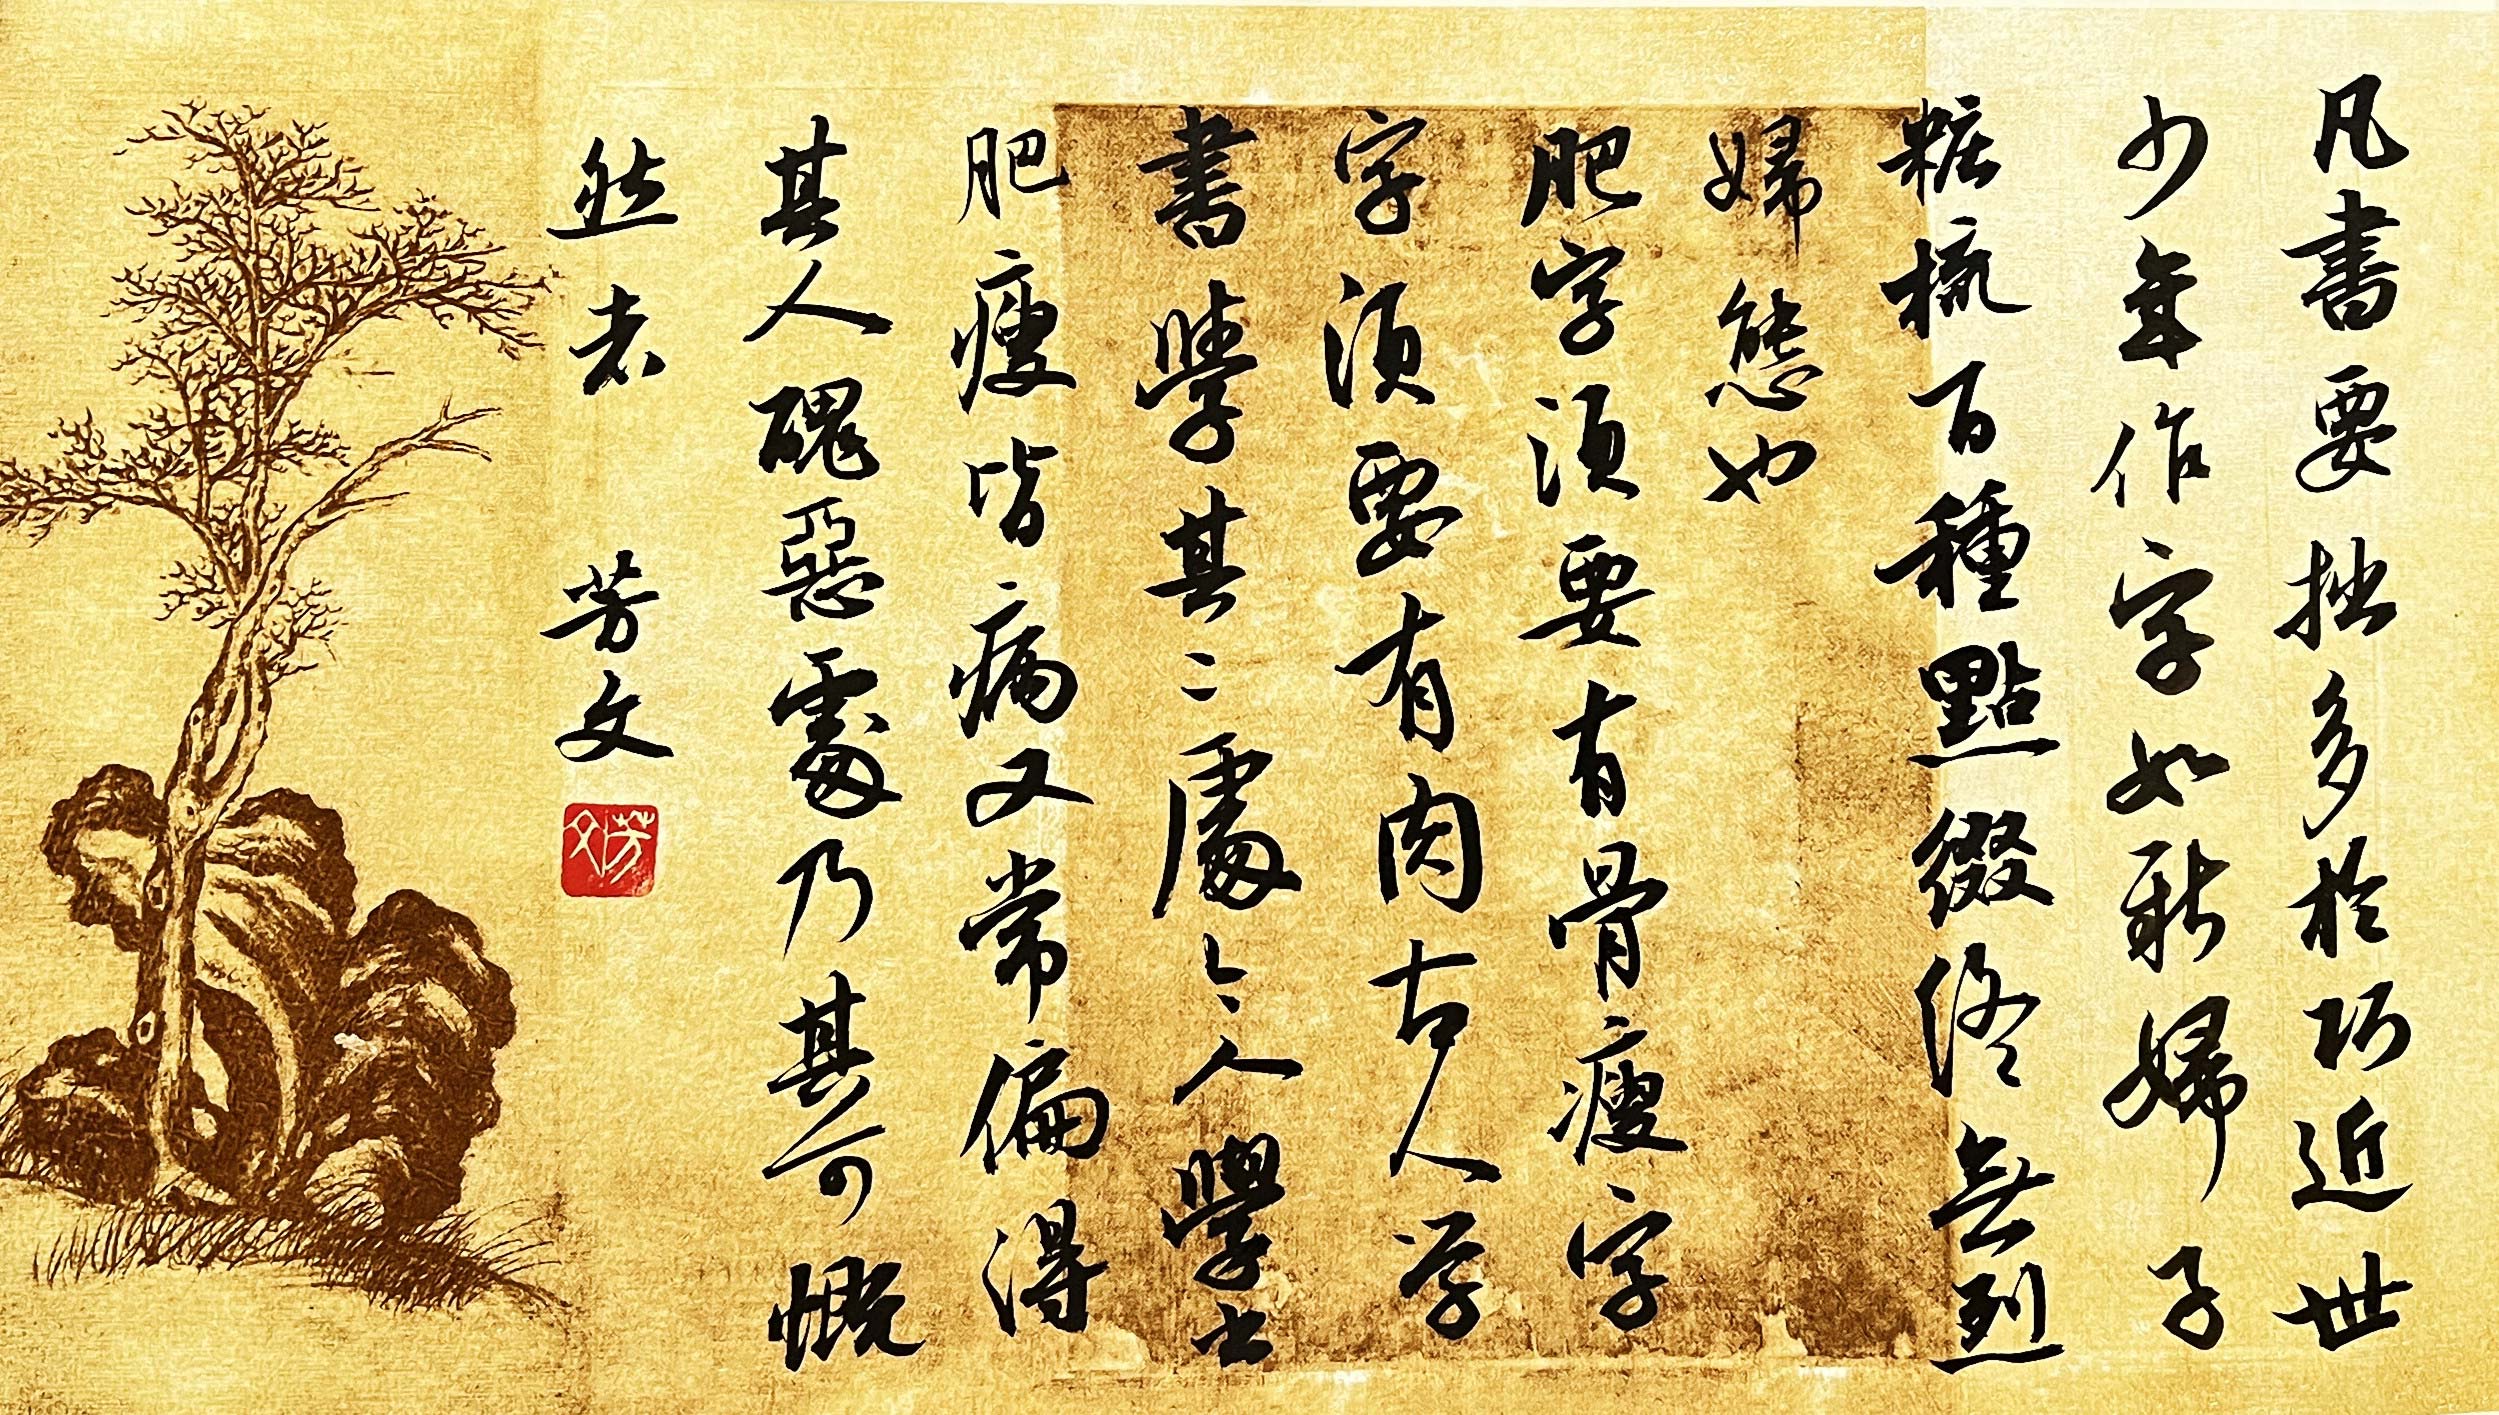 凡書要拙多於巧近世
少年作字如新婦子
糚梳百種點綴終無烈
婦態也
肥字須要有骨瘦字
字須要有肉古人学
書學其二處今人學书
肥瘦皆病又常偏得
其人醜惡處乃其可慨
然者 芳文
芳文